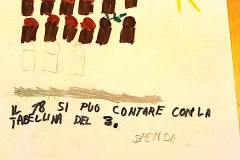 IL 18 SI PUÒ CONTARE CON LA
TABELLINA DEL 3.